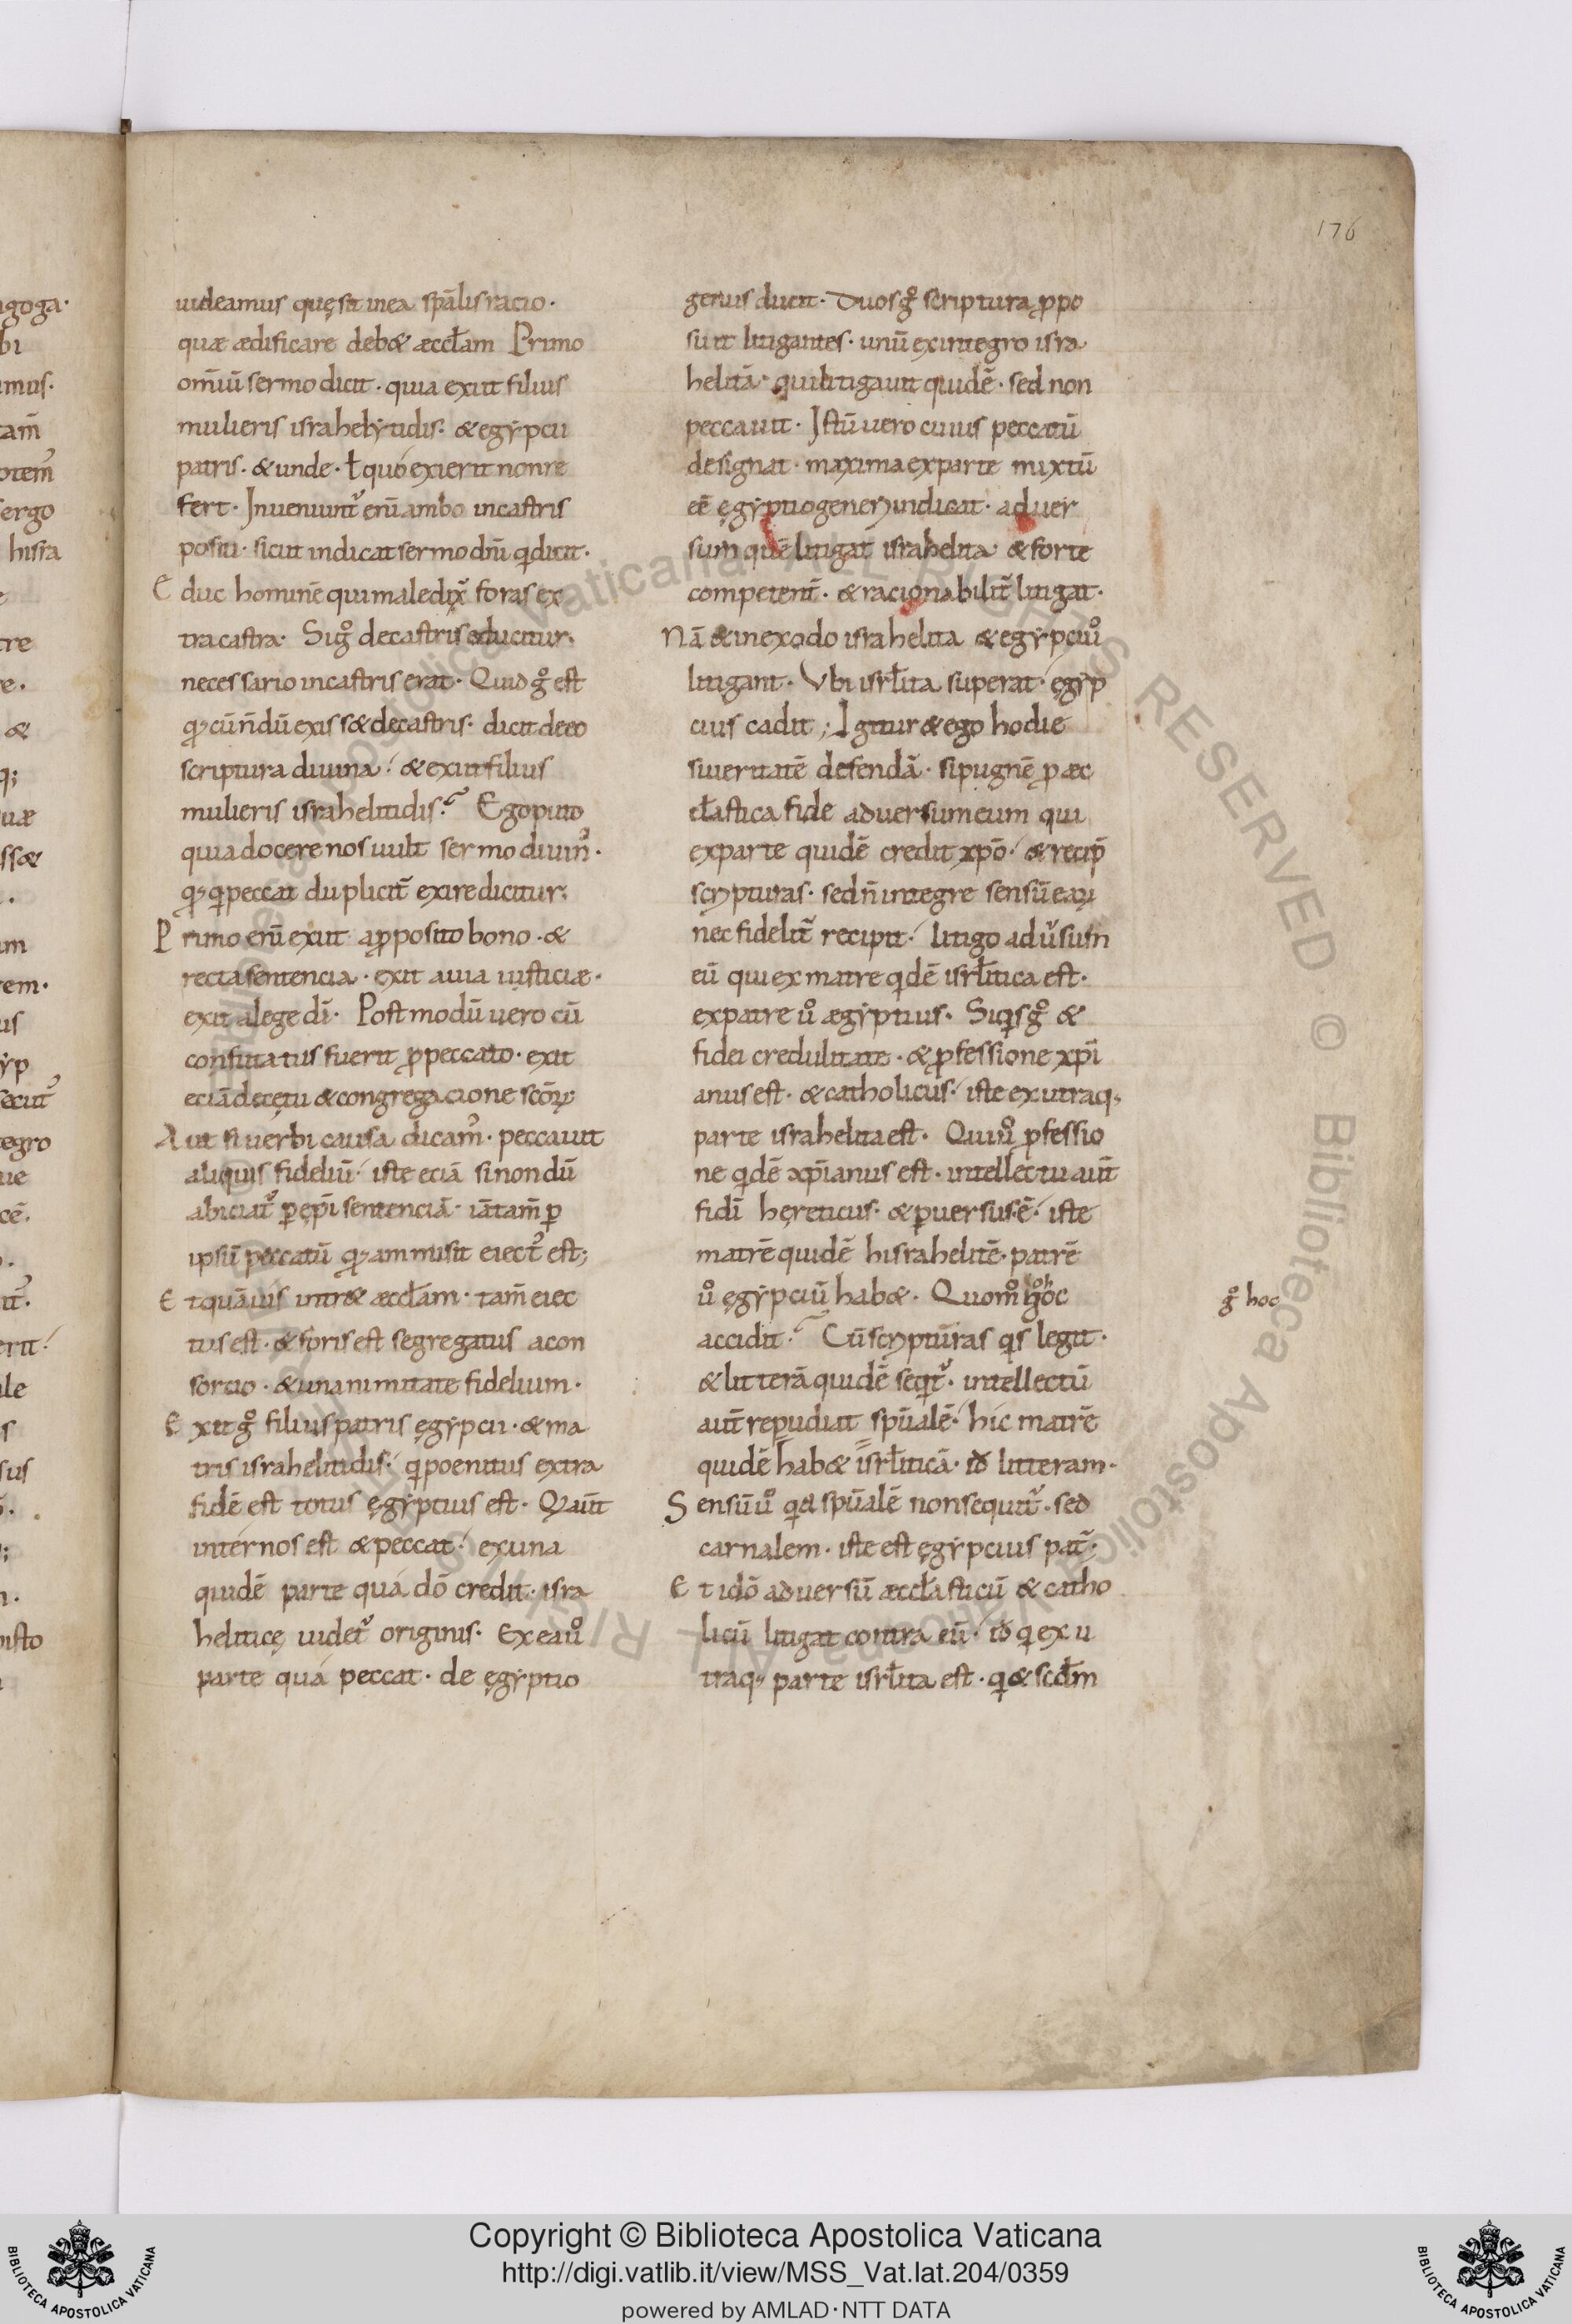 176
uideamus quę sit in ea spalis racio·
quæ ædificare deb& æccłam Primo
om̄iū sermo dicit· quia exiit filius
mulieris israhelẏtidis· & egẏpcii
patris· & unde· ł quó exierit non re
fert· Inueniunt̃ eni ̄ ambo in castris
positi· sicut indicat sermo dni ̄ q dicit·
E duc homine ̄ qui maledix̃ foras ex
tra castra· Si g° de castris educitur·
necessario in castris erat· Quid g° est
qđ cū n̄dū exiss& de castris· dicit de eo
scriptura diuina·́ & exiit filius
mulieris israhelitidis·̃ Ego puto
quia docere nos uult sermo diuin᾿·
qđ q peccat duplicit̃ exire dicitur;
P rimo eni ̄ exiit a pposito bono· &
recta sentencia· exit a uia iusticiæ·
exit a lege di ̄· Post modū uero cū
confutatus fuerit p peccato· exit
eciā de cętu & congregacione scōꝝ;
A ut si uerbi causa dicam᾿· peccauit
aliquis fideliū·́ iste eciā si nondū
abiciat̃ p epi ̄ sentenciā· iā tam̄ p
ipsū peccatū qđ ammisit eiect᾿ est;
E t quāuis intr& æccłam· tam̄ eiec
tus est· & foris est segregatus a con
sorcio· & unanimitate fidelium·
E xiit g° filius patris ęgẏpcii· & ma
tris israhelitidis·́ q poenitus extra
fidē est totus ęgẏptius est· Q aūt
inter nos est & peccat·́ ex una
quidē parte quá dō credit· isra
heliticę uidet̃ originis· Ex ea u°
parte quá peccat· de ęgẏptio
genus ducit· Duos g° scriptura ppo
suit litigantes· unū ex integro isra
helitā· qui litigauit quidē· sed non
peccauit· Istū uero cuius peccatū
designat· maxima ex parte mixtū
eē ęgẏptio generi indicat· aduer
sum quē litigat israhelita & forte
competent̃· & racionabilit̃ litigat·
Nā & in exodo israhelita & egẏpciu°
litigant· Vbi isrłita superat·́ ęgẏp
cius cadit; Igitur & ego hodie
si ueritatē defendā· si pugnē p æc
cłastica fide aduersum eum qui
ex parte quidē credit xpō·́ & recip̄
scripturas· sed n̄ integre sensū eaꝝ
nec fidelit̃ recipit·́ litigo aduersum
eū qui ex matre qdē isrłitica est·
ex patre u° ægẏptius· Si qis g° &
fidei credulitate· & pfessione xpi ̄
anus est· & catholicus·́ iste ex utraq;
parte israhelita est· Qui u° pfessio
ne qdē xpi ̄anus est· intellectu aūt
fidi ̄ hęreticus· & puersus·ē·́ iste
matrē quidē hisrahelitē· patrē
u° ęgẏpciū hab&· Quom° hoc
g° hoc
accidit·̃ Cū scripturas qis legit·
& litterā quidē seqit̃· intellectū
aūt repudiat spūalē·́ hic matrē
quidē hab& isrłiticā· id̄ litteram·
S ensū u° qa spūalē non sequit̃· sed
carnalem· iste est ęgẏpcius pat̃;
E t idō aduersū æccłasticū & catho
licū litigat contra eū·́ id̄ q ex u
traq; parte isrłita est· q & scđm
Copyright © Biblioteca Apostolica Vaticana
http://digi.vatlib.it/view/MSS_Vat.lat.204/0359
powered by AMLAD·NTT DATA